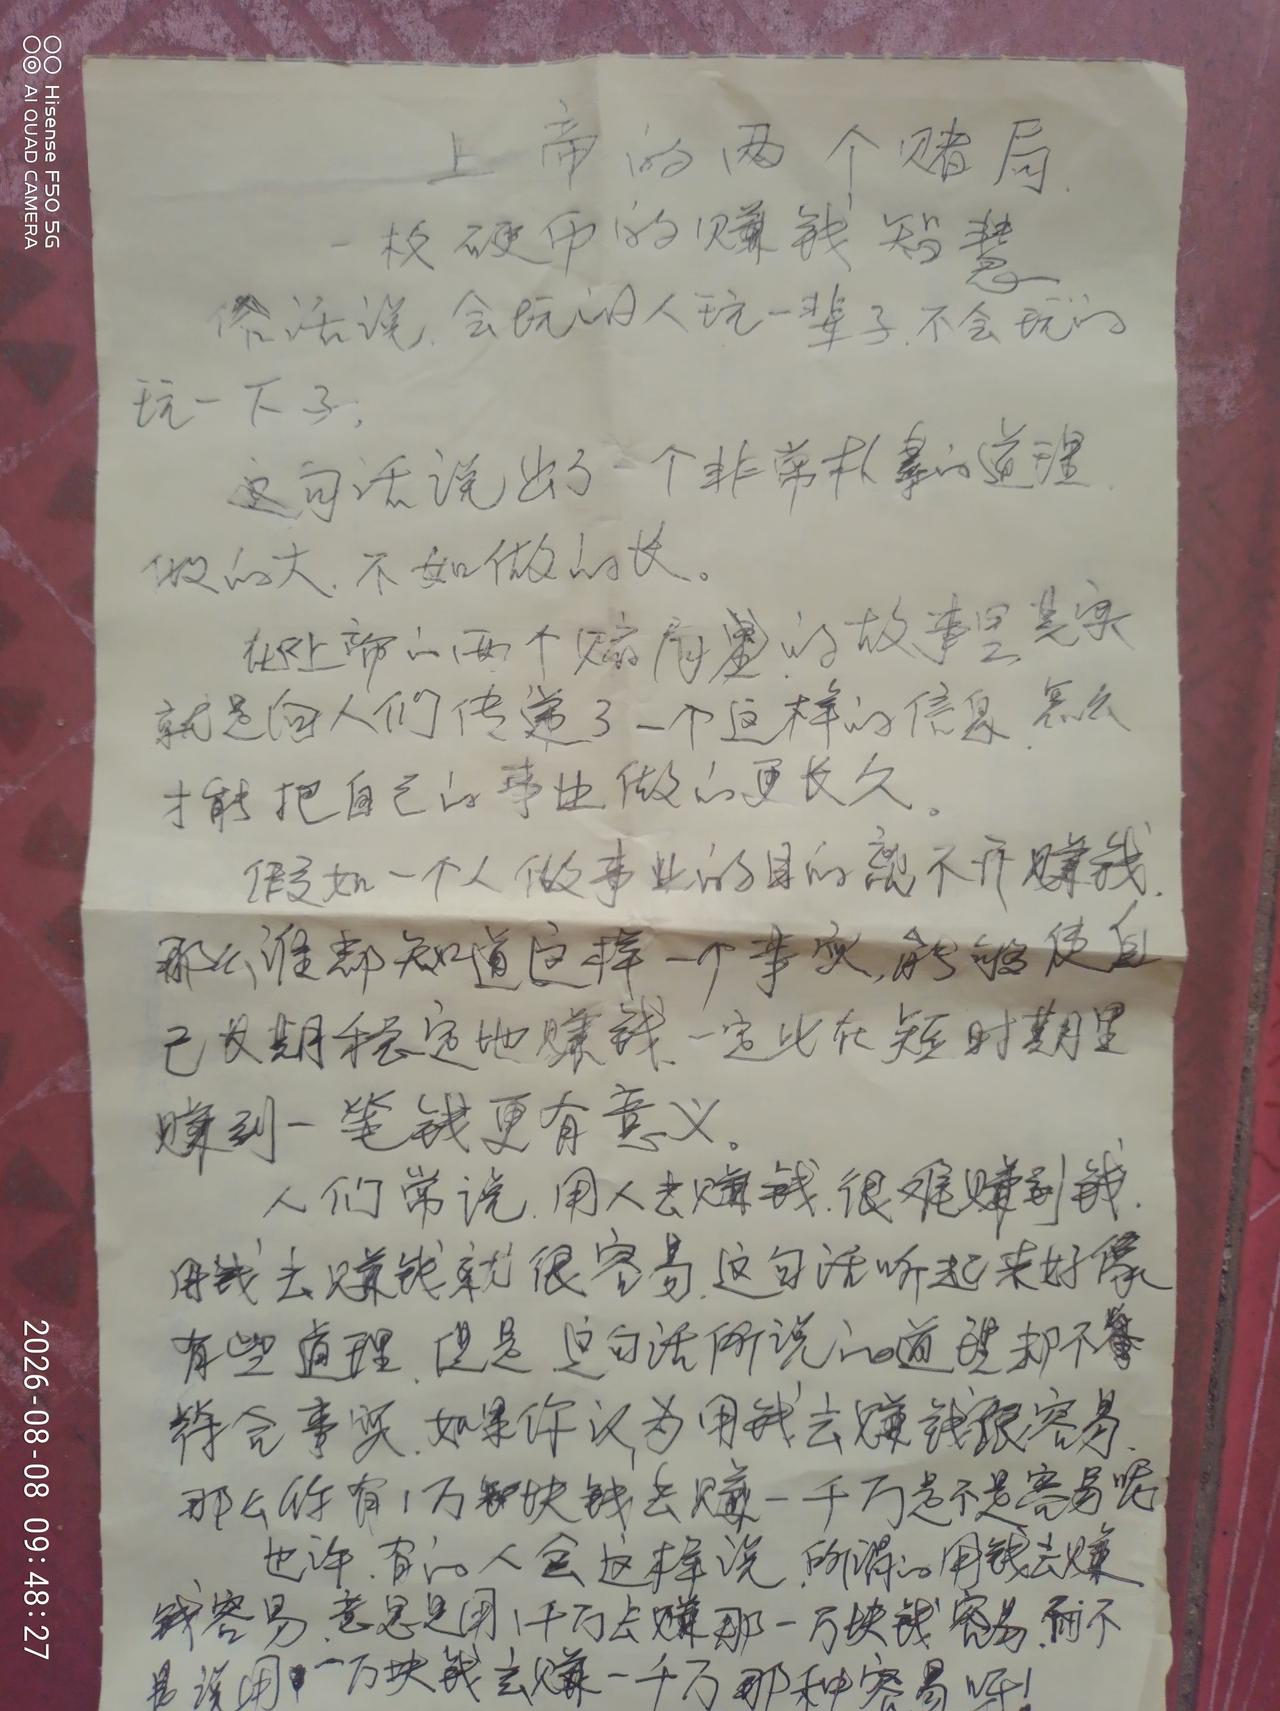 上帝的两个赌局
一枚硬币的赚钱智慧
俗话说,会玩的人玩一辈子,不会玩的
玩一下子,
这句话说出了一个非常朴素的道理,
做的大,不如做的长。
在上帝的两个赌局里的故事里其实
就是向人们传递了一个这样的信息,怎么
才能把自己的事业做的更长久。
假如一个人做事业的目的离不开赚钱,
那么谁都知道这样一个事实,能够使自
己长期稳定地赚钱,一定比在短时期里
赚到一笔钱更有意义。
人们常说,用人去赚钱,很难赚到钱,
用钱去赚钱就很容易,这句话听起来好像
有些道理,但是,这句话所说的道理却不
符合事实,如果你认为用钱去赚钱很容易,
那么你有1万块钱去赚一千万是不是容易呢
也许,有的人会这样说,所谓的用钱去赚
钱容易,意思是用1千万去赚那一万块钱容易,而不
是说用一万块钱去赚一千万那种容易呀!
Hisense F50 5G
AI QUAD CAMERA
2026-08-08 09:48:27